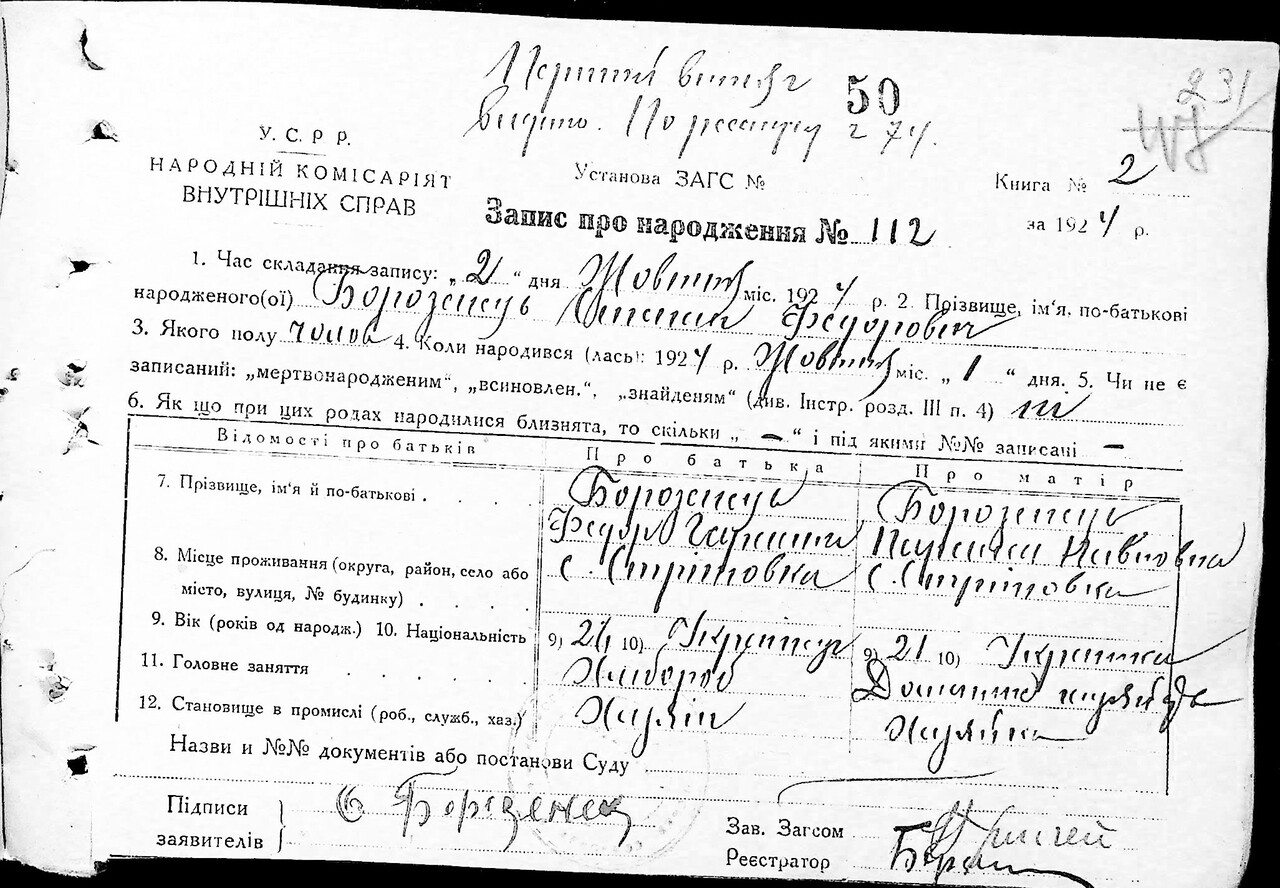 Перший витяг 50
видано. По реєстру 2 74. 231
У. С. Р. Р.
НАРОДНІЙ КОМІСАРІЯТ
ВНУТРІШНІХ СПРАВ
Установа ЗАГС №
Книга № 2
за 1924 р.
Запис про народження № 112
1. Час складання запису: „2“ дня Жовтня міс. 1924 р. 2. Прізвище, ім'я, по-батькові
народженого(ої) Борозенець Степан Федорович
3. Якого полу чолов 4. Коли народився (лась): 1924 р. Жовтня міс. „1“ дня. 5. Чи не є
записаний: „мертвонародженим“, „всиновлен.“, „знайденям“ (див. Інстр. розд. III п. 4) ні
6. Як що при цих родах народилися близнята, то скільки „—“ і під якими №№ записані —
Відомості про батьків Про батька Про матір
7. Прізвище, ім'я й по-батькові Борозенець Борозенець
Федор Параска Павловна
8. Місце проживання (округа, район, село або с. Стрітовка с. Стрітовка
місто, вулиця, № будинку)
9. Вік (років од народж.) 10. Національність 9) 21 10) Українець 9) 21 10) Українка
11. Головне заняття Хлібороб Домашнє
12. Становище в промислі (роб., служб., хаз.) Хазяїн Хазяйка
Назви и №№ документів або постанови Суду
Підписи
заявителів
Зав. Загсом
Реєстратор